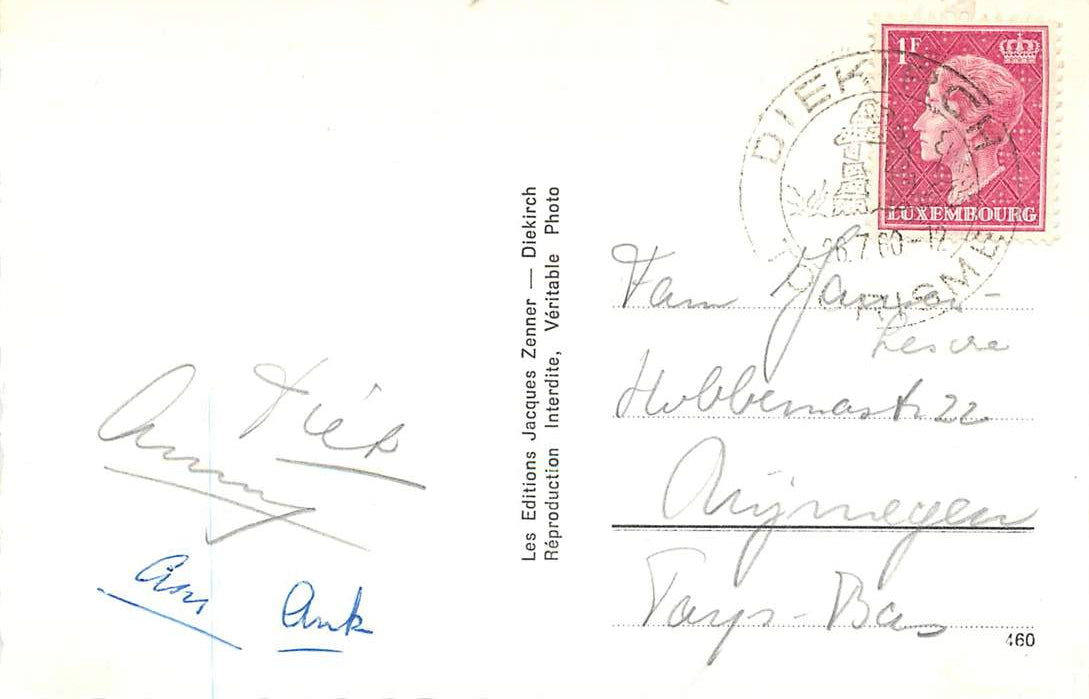 1F
LUXEMBOURG
DIEKIRCH
26.7.60-12
Les Editions Jacques Zenner — Diekirch
Réproduction Interdite, Véritable Photo
Fam Jansen-
Hobbemastr 22
Nijmegen
Pays-Bas
460
Annny
Ans
Ank